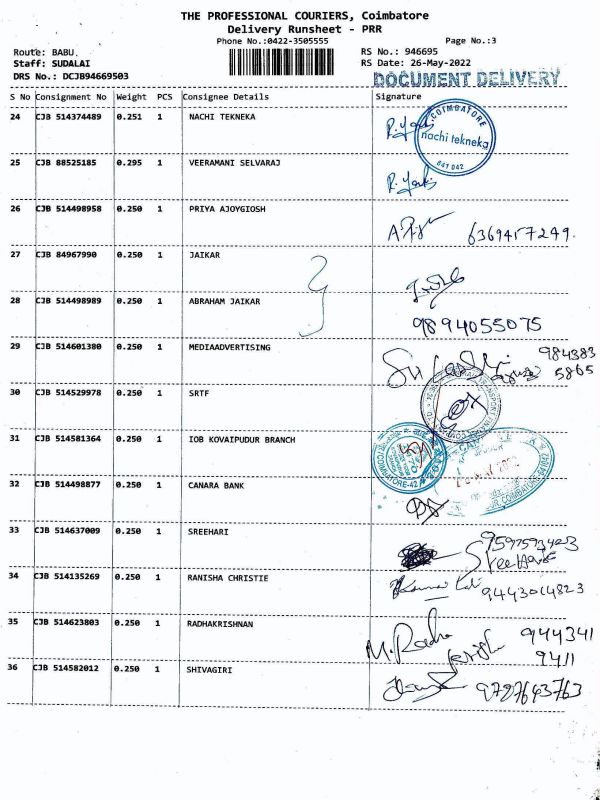 THE PROFESSIONAL COURIERS, Coimbatore
Delivery Runsheet - PRR
Phone No.:0422-3505555
Page No.:3
Route: BABU
RS No.: 946695
Staff: SUDALAI
RS Date: 26-May-2022
DRS No.: DCJB94669503
DOCUMENT DELIVERY
S No Consignment No Weight PCS Consignee Details Signature
24 CJB 514374489 0.251 1 NACHI TEKNEKA
COIMBATORE
nachi tekneka
641 042
25 CJB 88525185 0.295 1 VEERAMANI SELVARAJ
26 CJB 514498958 0.250 1 PRIYA AJOYGIOSH
6369457249.
27 CJB 84967990 0.250 1 JAIKAR
28 CJB 514498989 0.250 1 ABRAHAM JAIKAR
9894055075
29 CJB 514601380 0.250 1 MEDIAADVERTISING
984383
5865
30 CJB 514529978 0.250 1 SRTF
31 CJB 514581364 0.250 1 IOB KOVAIPUDUR BRANCH
COIMBATORE-42
32 CJB 514498877 0.250 1 CANARA BANK
33 CJB 514637009 0.250 1 SREEHARI
9597593423
34 CJB 514135269 0.250 1 RANISHA CHRISTIE
9443014823
35 CJB 514623803 0.250 1 RADHAKRISHNAN
M. Radha
944341
9411
36 CJB 514582012 0.250 1 SHIVAGIRI
9787643763